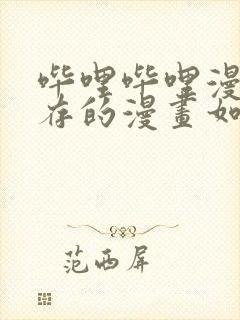 哔哩哔哩漫
存的漫畫如
范西屏